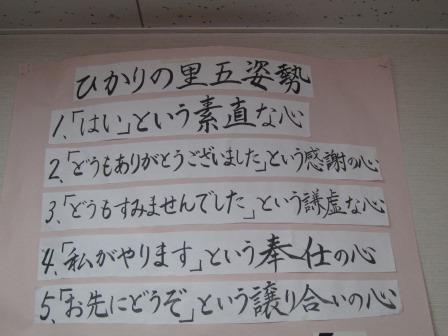 ひかりの里五姿勢
1.「はい」という素直な心
2.「どうもありがとうございました」という感謝の心
3.「どうもすみませんでした」という謙虚な心
4.「私がやります」という奉仕の心
5.「お先にどうぞ」という譲り合いの心